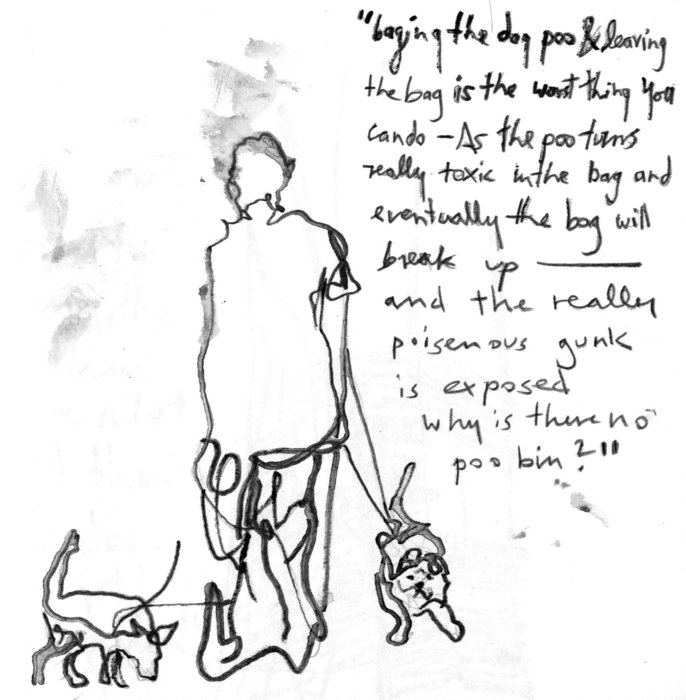 "baging the dog poo & leaving
the bag is the worst thing you
can do – As the poo turns
really toxic in the bag and
eventually the bag will
break up —
and the really
poisenous gunk
is exposed
why is there no
poo bin?"